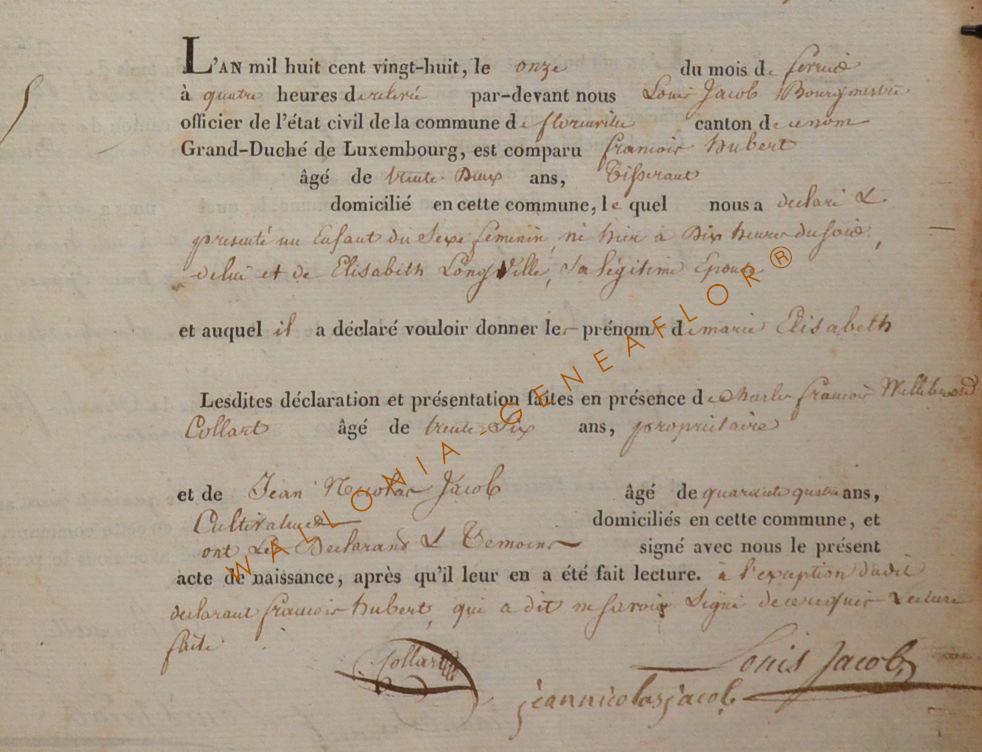 L'AN mil huit cent vingt-huit, le onze du mois de fevrié
à quatre heures de relevé par-devant nous Louis Jacob Bourgmestre
officier de l'état civil de la commune de florenville canton de ce nom
Grand-Duché de Luxembourg, est comparu francois hubert
âgé de trente Deux ans, Tisserant
domicilié en cette commune, le quel nous a declaré &
presenté un Enfant du Sexe feminin, né hier à Dix heures du soir,
de lui et de Elisabeth Long Ville, Sa légitime Epouse
et auquel il a déclaré vouloir donner les prénoms de marie Elisabeth
Lesdites déclaration et présentation faites en présence de charles francois Willibrord
Collart âgé de trente Six ans, propriétaire
et de Jean Nicolas Jacob âgé de quarante quatre ans,
Cultivateur domiciliés en cette commune, et
ont Les Declarans & Temoins signé avec nous le présent
acte de naissance, après qu'il leur en a été fait lecture. à l'exception dudit
declarant francois hubert, qui a dit ne savoir Signé de ce requis Lecture
faite
Collart
Louis Jacob
jeannicolasjacob
WALLONIA-GENEAFLOR®